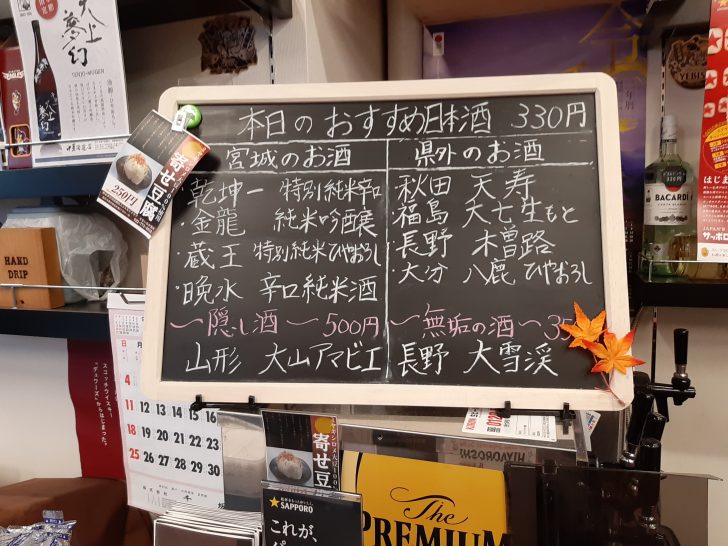 本日のおすすめ日本酒 330円
宮城のお酒
・乾坤一 特別純米辛口
・金龍 純米吟醸
・蔵王 特別純米ひやおろし
・晩水 辛口純米酒
〜隠し酒〜500円
山形 大山アマビエ
県外のお酒
・秋田 天寿
・福島 大七生もと
・長野 木曽路
・大分 八鹿 ひやおろし
〜無垢の酒〜35
長野 大雪渓
寄せ豆腐
250円
天上夢幻
TENJO-MUGEN
EAGLES
HAND
DRIP
スコッチウイスキー
「デュワーズ」からはじまった。
日
月
4
11
12
13
14
15
16
18
19
20
21
22
23
25
26
27
28
29
30
寄せ豆
SAPPORO
これが、
The
PREMIUM
BACARDI
YEBIS
はじま
JAPAN'S
サッポロ